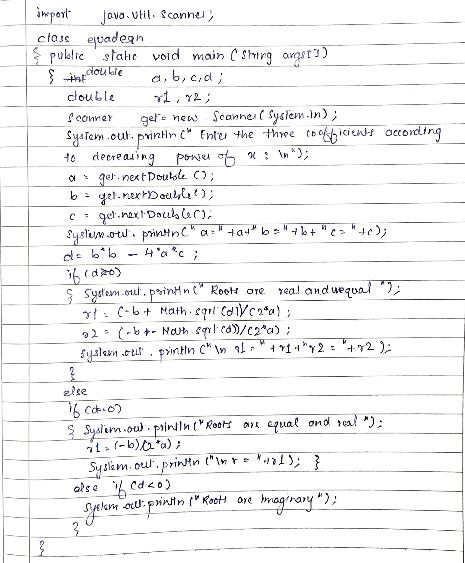 import java.util.Scanner;
class equadeqn
{ public static void main (String args[])
{ int double a, b, c, d;
double r1, r2;
Scanner get = new Scanner(System.in);
System.out.println(" Enter the three coefficients according
to decreasing power of x : \n");
a = get.nextDouble();
b = get.nextDouble();
c = get.nextDouble();
System.out.println(" a=" +a+" b=" +b+ "c=" +c);
d= b*b - 4*a*c ;
if (d>0)
{ System.out.println(" Roots are real and unequal ");
r1 = (-b + Math.sqrt(d))/(2*a) ;
r2 = (-b - Math.sqrt(d))/(2*a) ;
System.out.println("\n r1 = " +r1+"r2 = "+r2 );
}
else
if (d=0)
{ System.out.println("Roots are equal and real ");
r1 = (-b)/(2*a) ;
System.out.println("\n r = "+r1); }
else if (d<0)
System.out.println(" Roots are Imaginary ");
}
}